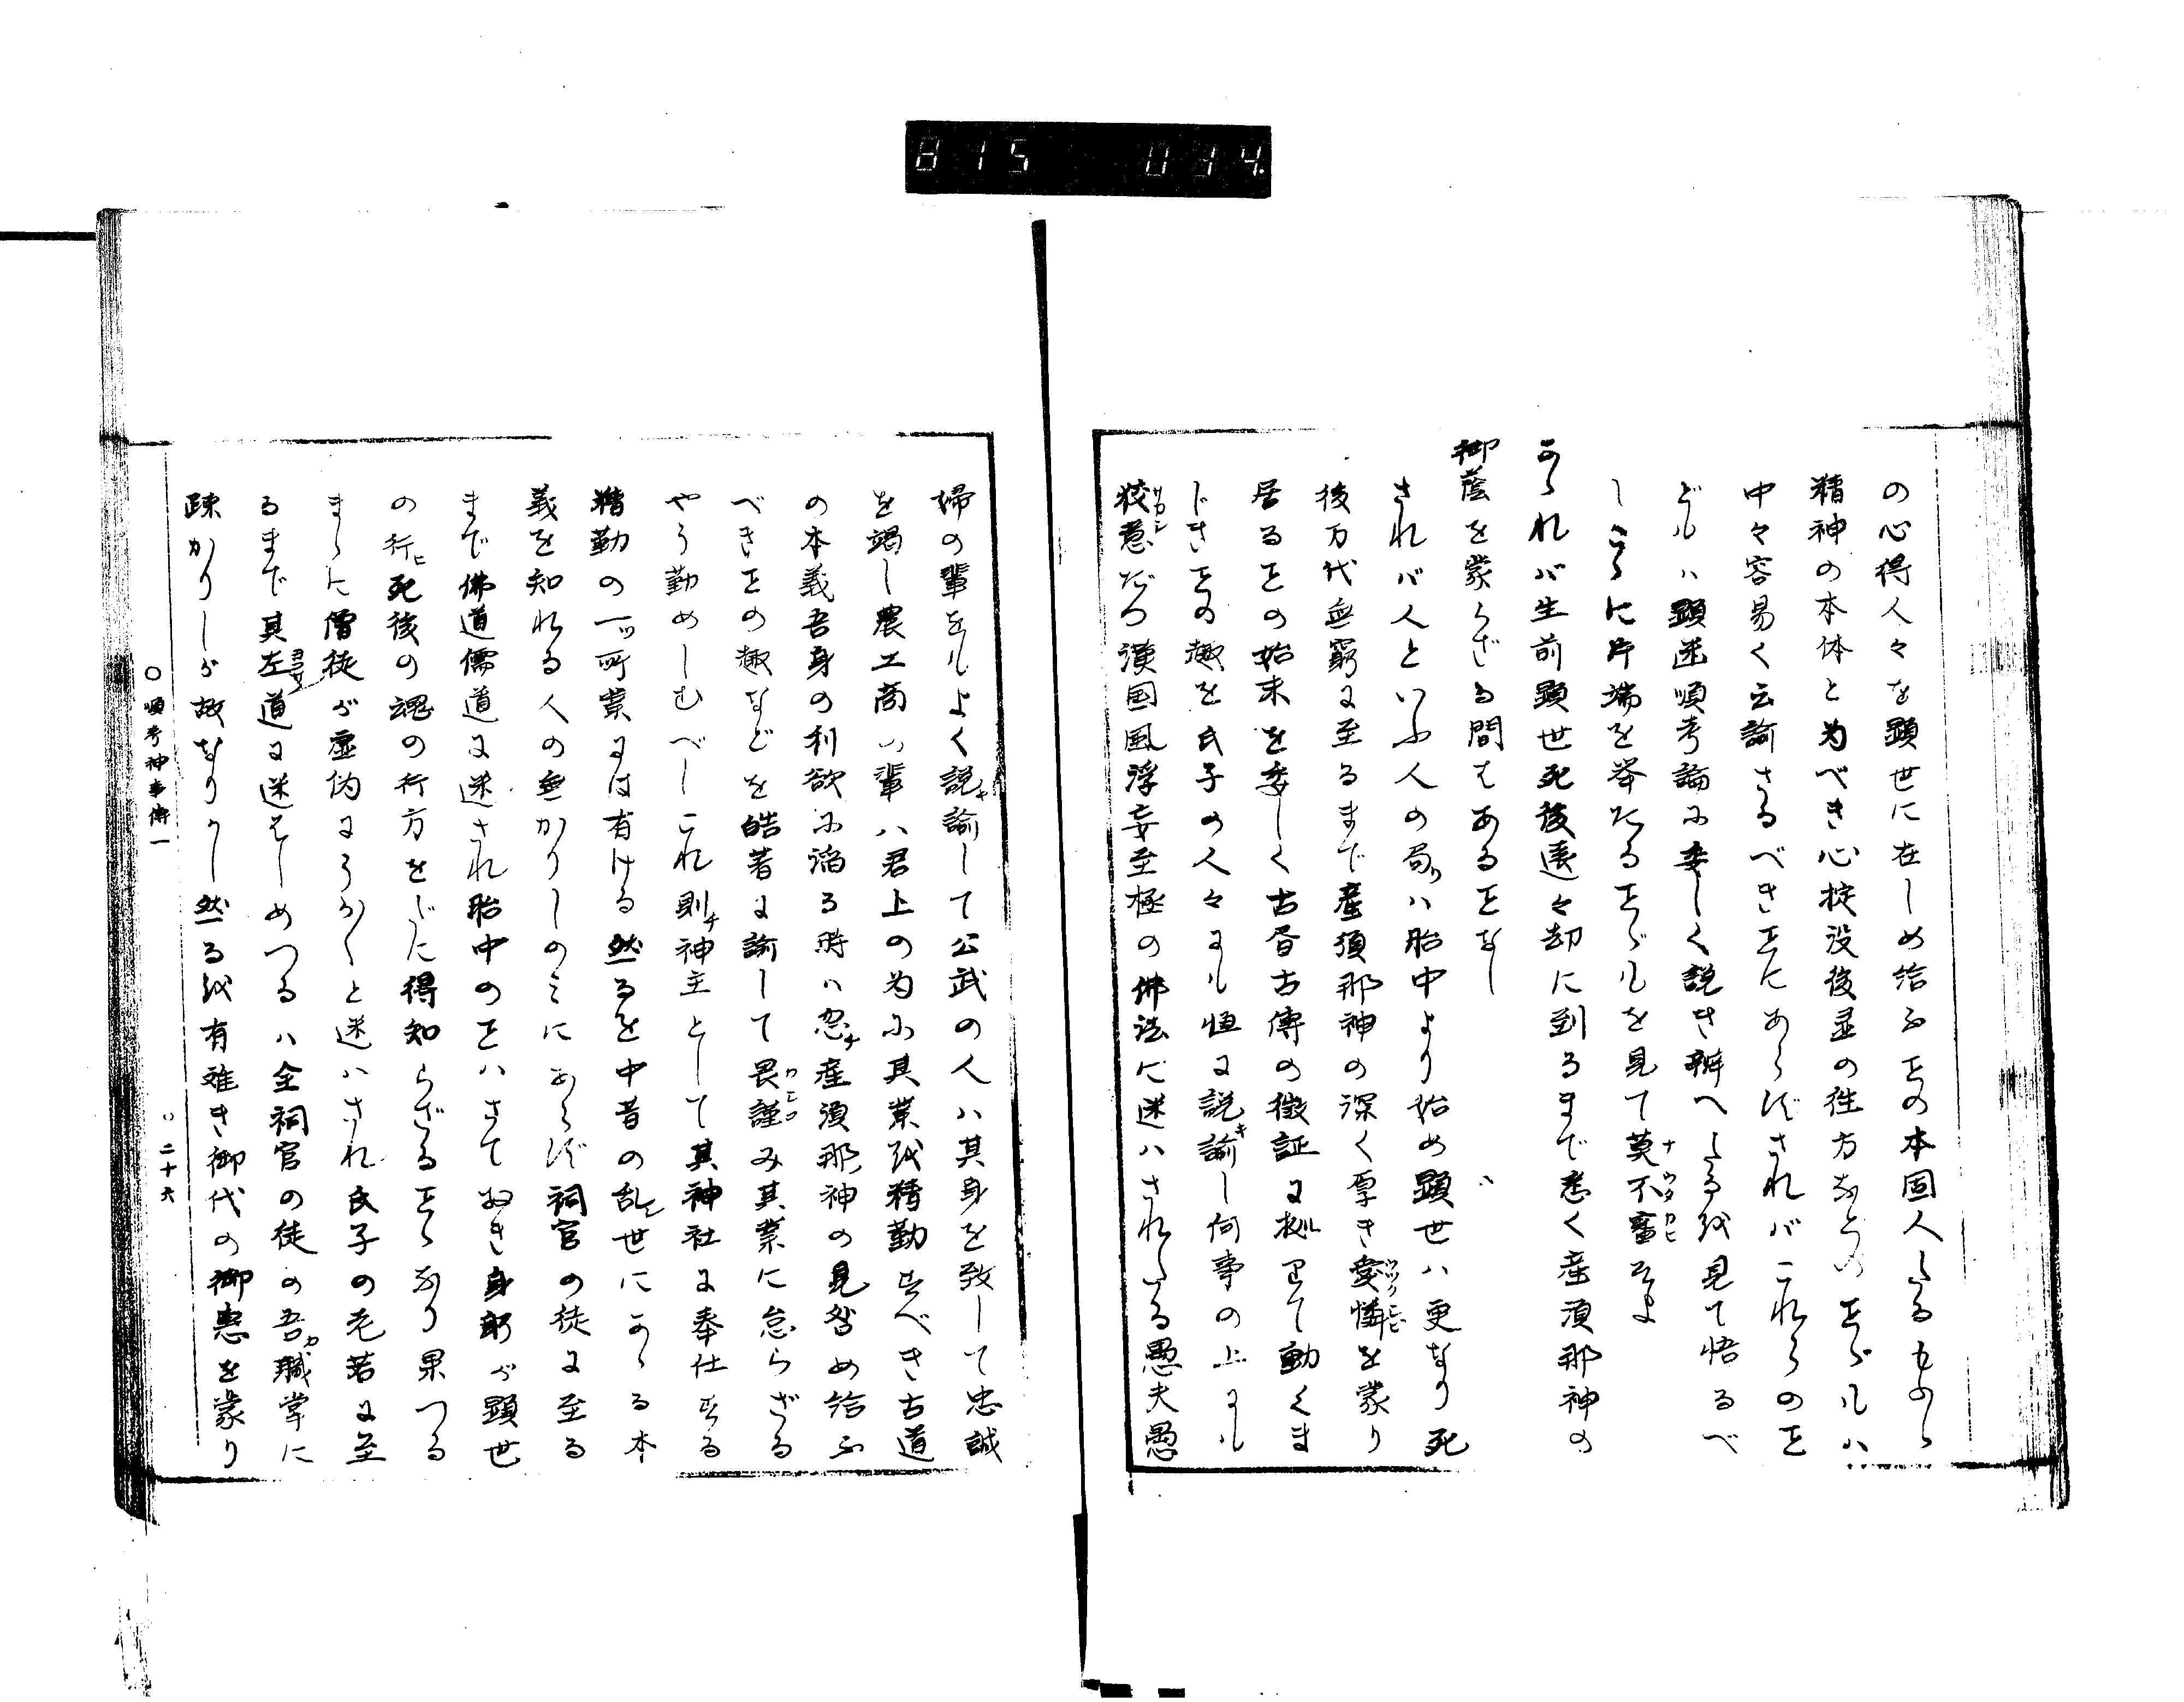 815 014
の心得人々を顕世に在しめ給ふ■の本国人たるものら
精神の本体と為べき心掟没後霊の往方などの■■バ
中々容易く云諭さるべき■にあらずされバこれらの■
どもハ顕迷順考論に委しく説き辨へたるを見て悟るべ
しこゝに片端を挙たる■■もを見て莫不審そよ
かゝれバ生前顕世死後遠々劫に到るまで悉く産須那神の
御蔭を蒙らざる間はある■なし
されバ人といふ人の限りハ胎中より始め顕世ハ更なり死
後万代無窮に至るまで産須那神の深く厚き愛憐を蒙り
居る■の始末を委しく古昔古傳の徴証に拠りて動くま
じき■の趣を氏子の人々にも恒に説諭し何事の上にも
狡意だつ漢国風浮妄至極の佛法に迷ハされたる愚夫愚
婦の輩をもよく説諭して公武の人ハ其身を致して忠誠
を竭し農工商の輩ハ君上の為に其業を精勤すべき古道
の本義吾身の利欲に溺る時ハ忽チ産須那神の見咎め給ふ
べき■の趣などを皓著に諭して畏謹み其業に怠らざる
やう勤めしむべしこれ則チ神主として其神社に奉仕する
精勤の一ッ所業には有ける然るを中昔の乱世にかゝる本
義を知れる人の無かりしのミにあらず祠官の徒に至る
まで佛道儒道に迷され胎中の■ハさておき身躬が顕世
の行ヒ死後の魂の行方をだに得知らざる■ゝなり果つる
まゝに僧徒が虚偽にうか〱と迷ハされ氏子の老若に至
るまで其左道に迷はしめつるハ全祠官の徒の吾ガ職掌に
疎かりしが故なりかし然るを有難き御代の御恵を蒙り
○順考神事傳一
○二十六